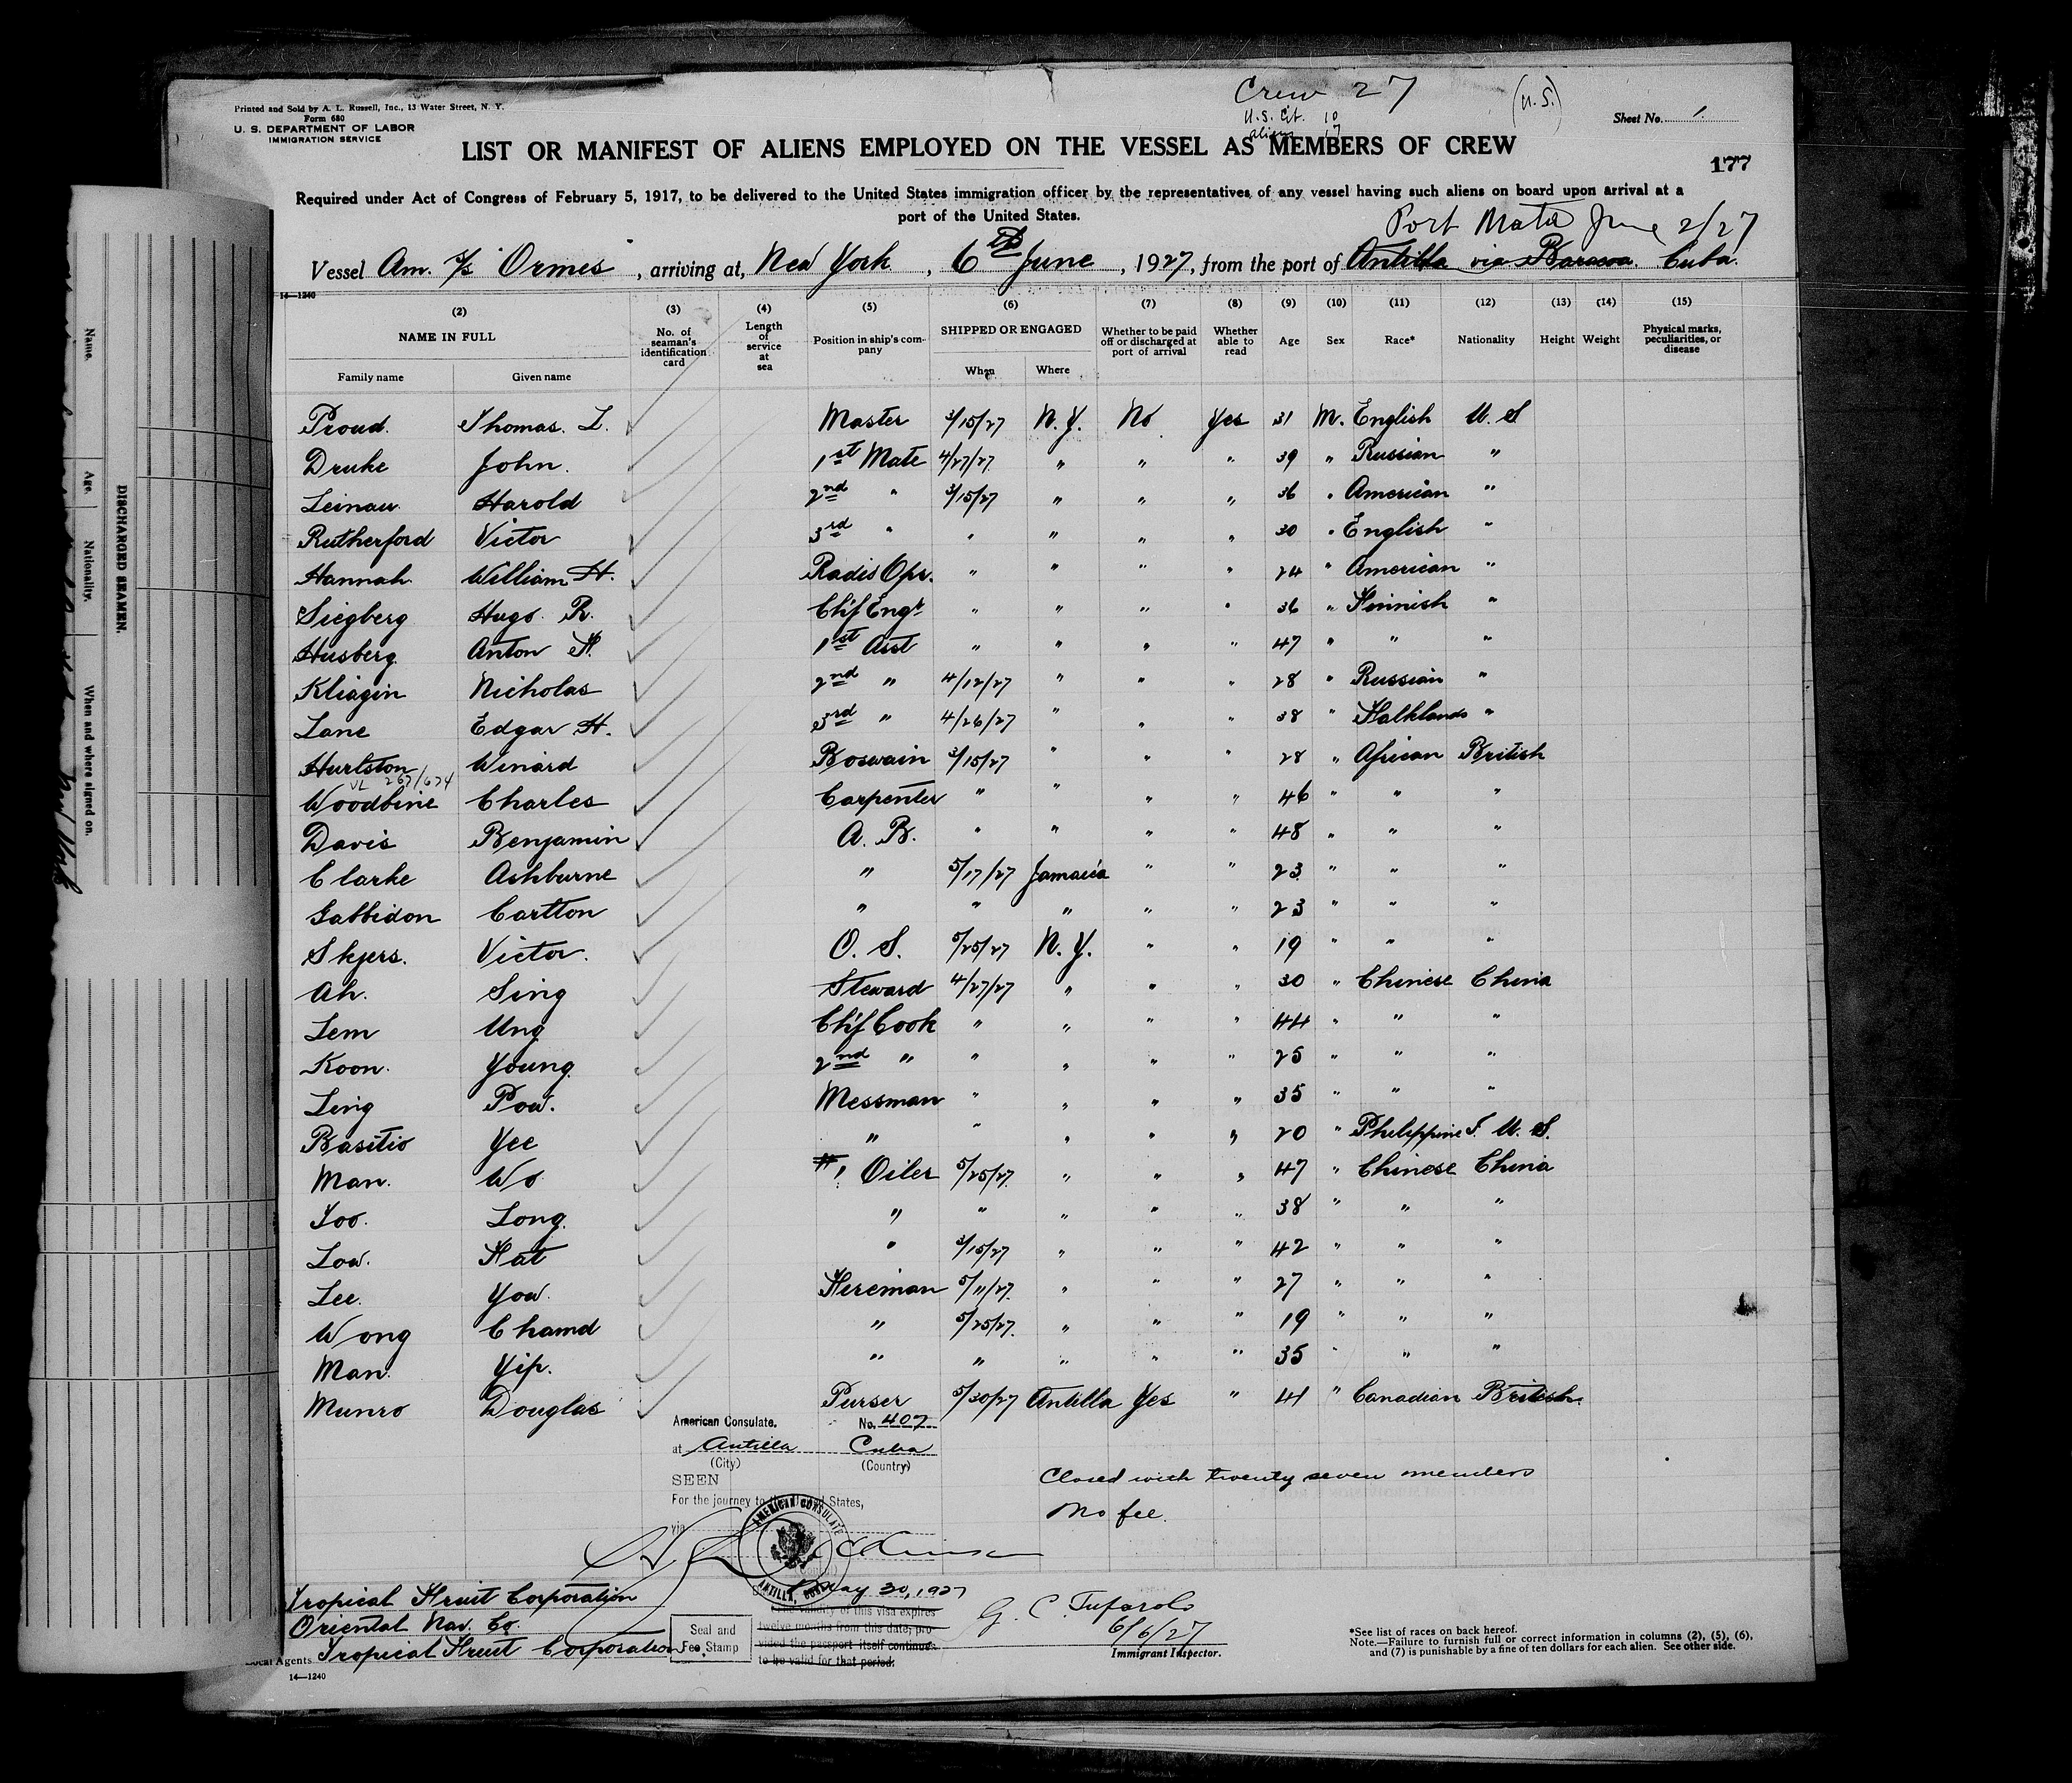 Crew 27
(U.S.)
U.S. Cit. 10
aliens 17
Printed and Sold by A. L. Russell, Inc., 13 Water Street, N. Y.
Form 680
U. S. DEPARTMENT OF LABOR
IMMIGRATION SERVICE
Sheet No. 1.
LIST OR MANIFEST OF ALIENS EMPLOYED ON THE VESSEL AS MEMBERS OF CREW
177
Required under Act of Congress of February 5, 1917, to be delivered to the United States immigration officer by the representatives of any vessel having such aliens on board upon arrival at a
port of the United States.
Port Mata June 2/27
Vessel Am. S/S "Ormes", arriving at, New York, 6th June, 1927, from the port of Antilla via Baracoa. Cuba.
14—1240
(2) (3) (4) (5) (6) (7) (8) (9) (10) (11) (12) (13) (14) (15)
NAME IN FULL No. of seaman's identification card Length of service at sea Position in ship's company SHIPPED OR ENGAGED Whether to be paid off or discharged at port of arrival Whether able to read Age Sex Race* Nationality Height Weight Physical marks, peculiarities, or disease
Family name Given name When Where
Proud. Thomas. L. Master 3/15/27 N.Y. No Yes 31 M. English U. S
Druke John. 1st Mate 4/27/27 " " " 39 " Russian "
Leinau Harold 2nd " 3/15/27 " " " 36 " American "
Rutherford Victor 3rd " " " " " 30 " English "
Hannah William H. Radio Opr. " " " " 24 " American "
Siegberg Hugo R. Chif Engr " " " " 36 " Finnish "
Husberg Anton F. 1st Asst " " " " 47 " " "
Kliagin Nicholas 2nd " 4/12/27 " " " 28 " Russian "
Lane Edgar H. 3rd " 4/26/27 " " " 38 " Falklands "
Hurlston Winard Boswain 3/15/27 " " " 28 " African British
VL 267/674
Woodbine Charles Carpenter " " " " 46 " " "
Davis Benjamin A. B. " " " " 48 " " "
Clarke Ashburne " 5/17/27 Jamaica " " 23 " " "
Gabbidon Carlton " " " " " 23 " " "
Skyers. Victor. O. S. 5/25/27 N.Y. " " 19 " " "
Ah. Sing Steward 4/27/27 " " " 30 " Chinese China
Lem Ung Chif Cook " " " " 44 " " "
Koon. Young 2nd " " " " " 25 " " "
Ling Pow. Messman " " " " 35 " " "
Basitio Yee " " " " " 20 " Philippine I. U. S.
Man. Wo #1 Oiler 5/25/27 " " " 47 " Chinese China
Foo. Long. " " " " " 38 " " "
Low. Fat " 3/15/27 " " " 42 " " "
Lee. Yow. Fireman 5/11/27 " " " 27 " " "
Wong Chamd " 5/25/27 " " " 19 " " "
Man. Yip. " " " " " 35 " " "
Munro Douglas Purser 5/30/27 Antilla Yes " 41 " Canadian British.
American Consulate. No. 407
at Antilla Cuba
(City) (Country)
SEEN
For the journey to the United States,
via
Closed with twenty seven members
No fee.
AMERICAN CONSULATE
ANTILLA, CUBA
May 30, 1927
The validity of this visa expires
twelve months from this date, pro-
vided the passport itself continues
to be valid for that period.
Seal and
Fee Stamp
Tropical Fruit Corporation
Oriental Nav. Co.
Local Agents Tropical Fruit Corporation
14—1240
G. C. Tufarolo
6/6/27
Immigrant Inspector.
*See list of races on back hereof.
Note.—Failure to furnish full or correct information in columns (2), (5), (6),
and (7) is punishable by a fine of ten dollars for each alien. See other side.
DISCHARGED SEAMEN.
Name.
Age.
Nationality.
When and where signed on.
New York